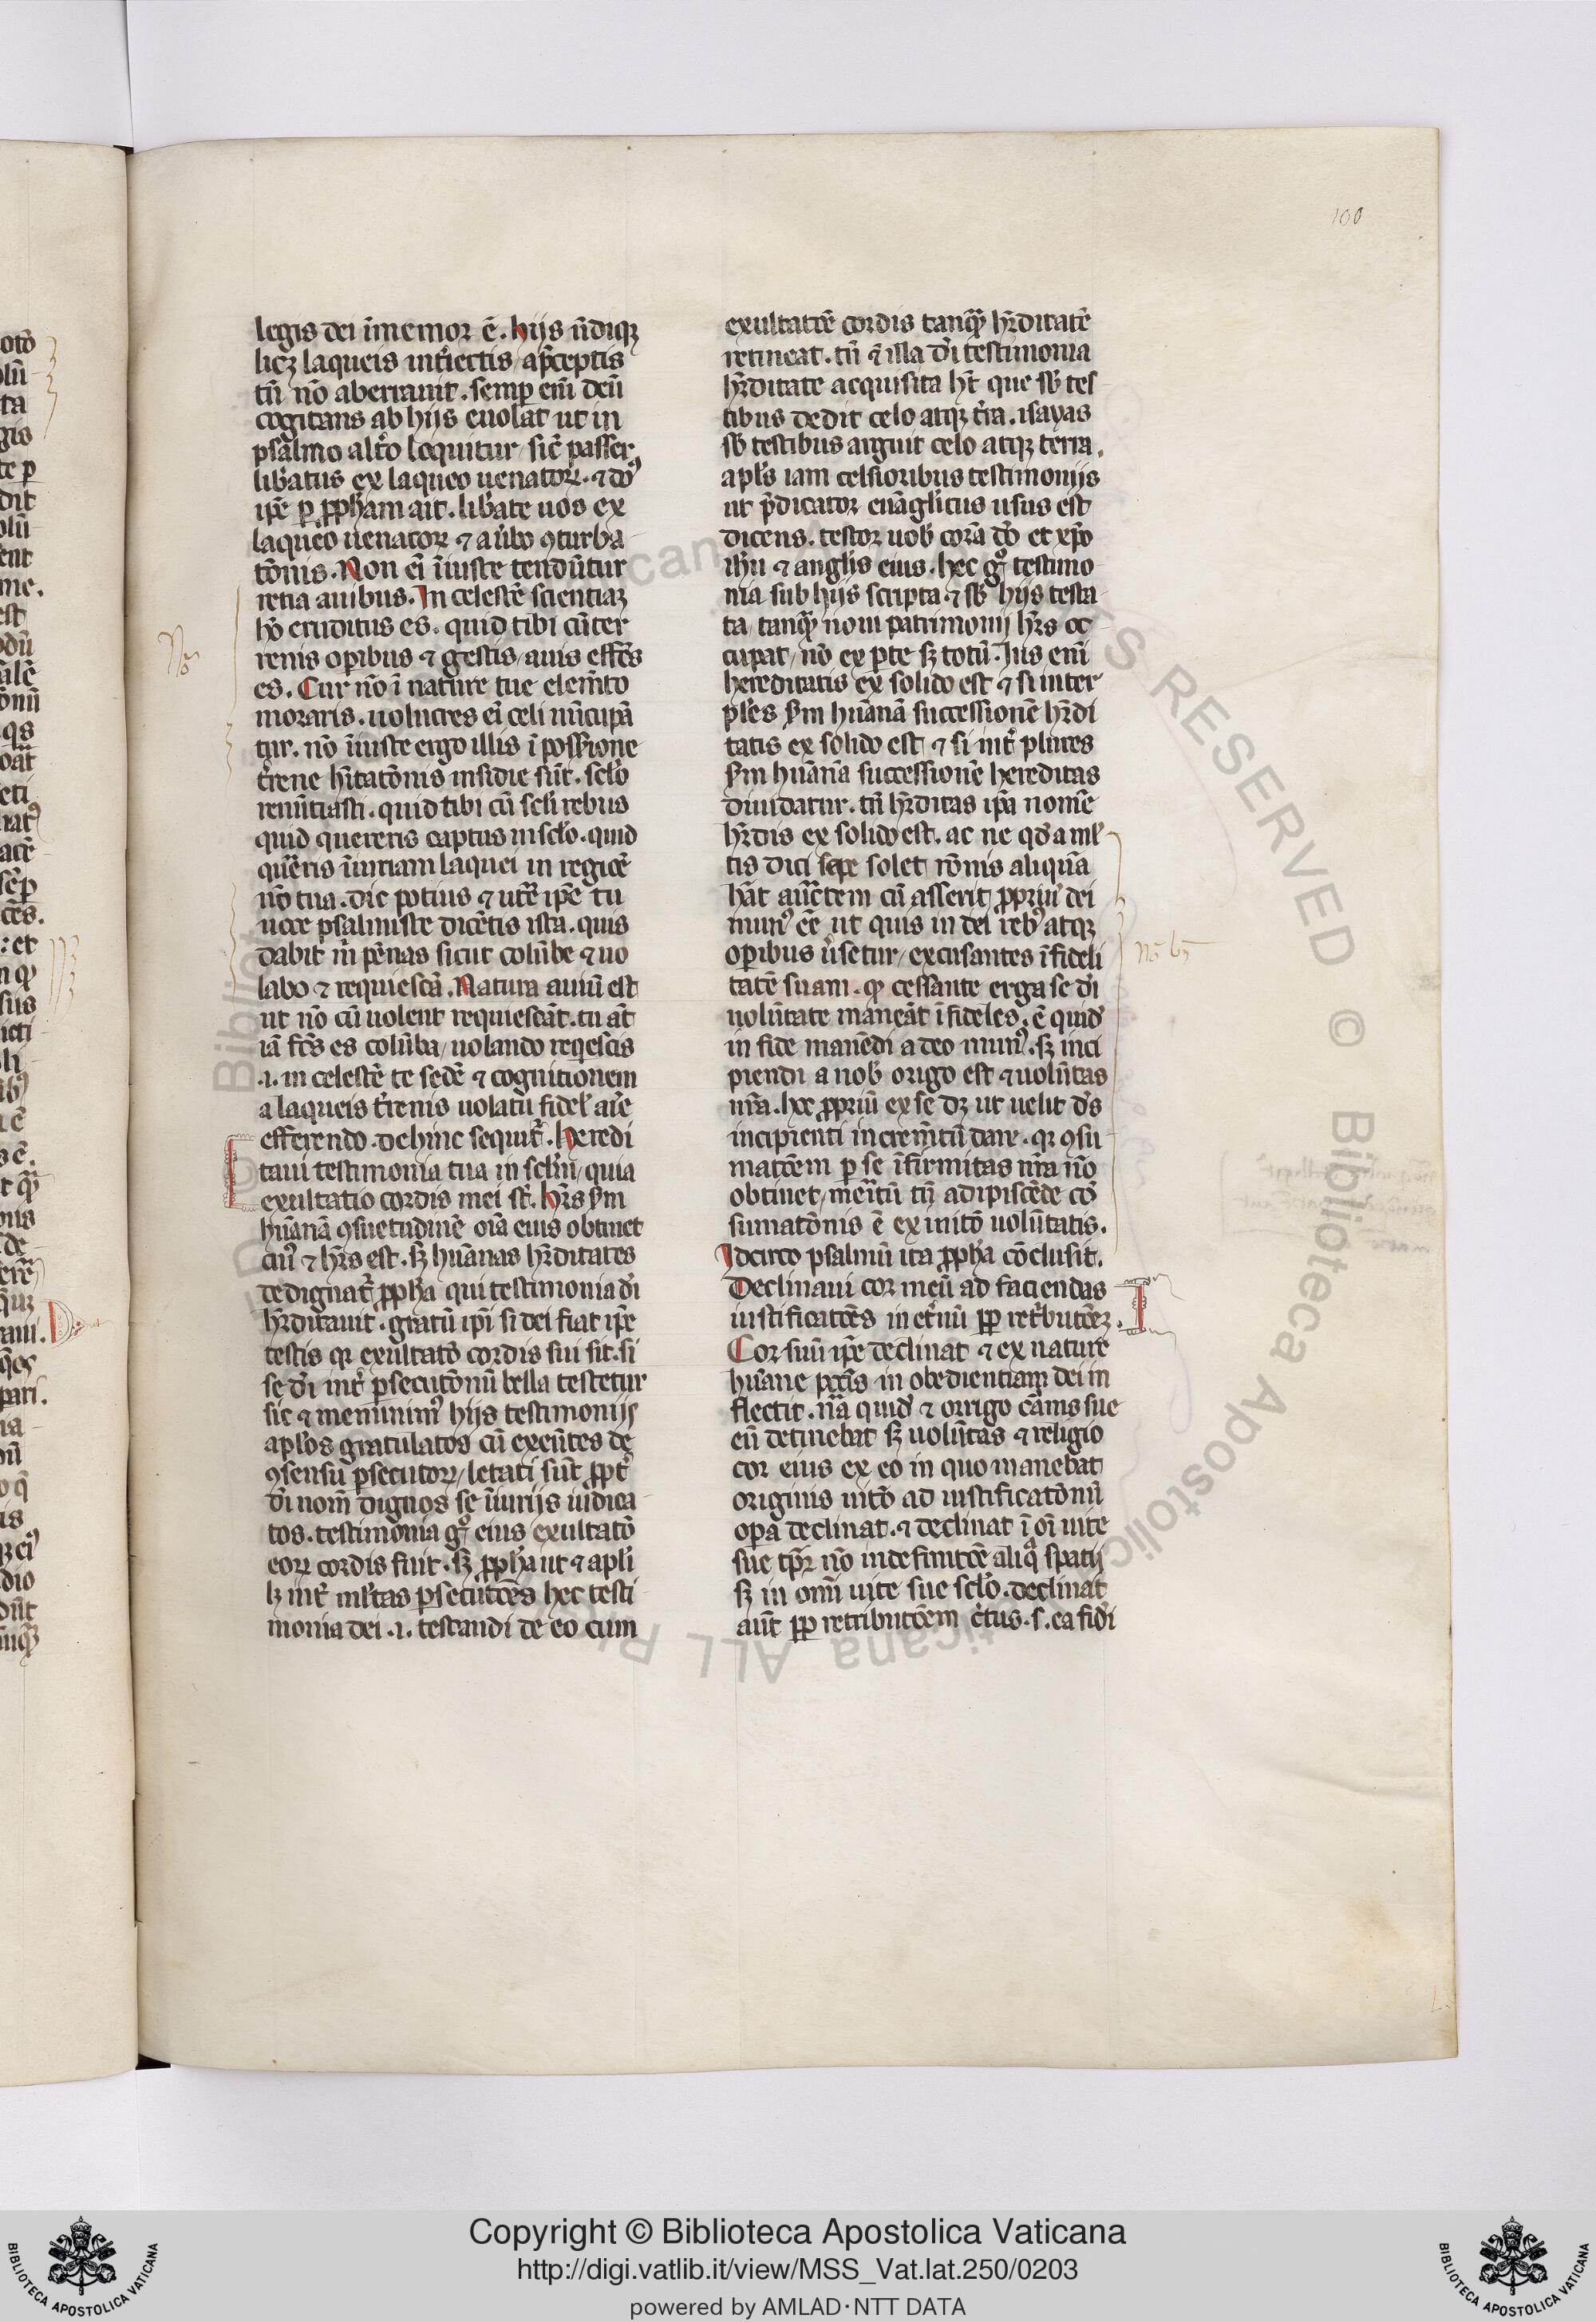 100
legis dei īmemor ē. hijs ūdiqȝ
licȝ laqueis int̾iectis / a p̄ceptis
tn̄ nō aberrauit. semp̱ enī deū
cogitans ab hijs euolat ut in
psalmo alt̾o loquitur / sic̄ passer
lib̾atus ex laqueo uenatoꝝ. ⁊ dn̄s
ip̄e ꝑ ꝓph̄am ait. lib̾ate uos ex
laqueo uenatoꝝ ⁊ a ūbo ꝯturba
tōnis. Non ei īiuste tendūtur
retia auibus. In celestē scientiaȝ
hō eruditus es. quid tibi cū ter
renis oꝑibus ⁊ gestis / auis effc̄s
es. Cur nō ī nature tue elemēto
moraris. uolucres ei celi nūcupā
tur. nō īiuste ergo illis ī possione
t̾rene hītatōnis insidie sūt. sclo
renūtiasti. quid tibi cū scli rebus
quid quereris captus in sclo. quid
quēris īiuriam laquei in regiōe
nō tua. dic potius ⁊ ut̾e ip̄e tu
uoce psalmiste dicētis ista. quis
dabit m̄ pēnas sicut colūbe ⁊ uo
labo ⁊ requiescā. Natura auiū est
ut nō cū uolent requiescāt. tu āt
iā fc̄s es colūba / uolando reqͥescis
.i. in celestē te sedē ⁊ cognitionem
a laqueis t̾renis uolatu fidel̾ aīe
efferendo. dehinc sequit̾. Heredi
taui testimonia tua in sclm̄ / quia
exultatio cordis mei st̄. hr̄s ẜm
hūanā ꝯsuetudinē oīa eius obtinet
cui⁹ ⁊ hr̄s est. sȝ hūanas hr̄ditates
dedignat̾ ꝓph̄a qui testimonia dī
hr̄ditauit. gratū ip̄i si dei fiat ip̄e
testis qꝛ exultatō cordis sui sit. si
se dī int̾ ꝑsecutōnū bella testetur
sic ⁊ meminim⁹ hijs testimonijs
aplos gratulatos cū exeūtes de
ꝯsensu ꝑsecutoꝝ / letati sūt ꝓpt̾
dī nom̄ dignos se īiurijs iudica
tos. testimonia gͦ eius exultatō
eoꝝ cordis fuit. sȝ ꝓph̄a ut ⁊ apl̄i
lȝ int̾ ml̾tas ꝑsecutōes hec testi
monia dei .i. testandi de eo cum
exultatōe cordis tanqͣȝ hr̄ditatē
retineat. tn̄ ⁊ illa dī testimonia
hr̄ditate acquisita ht̄ que sb̾ tes
tibus dedit celo atqȝ t̾ra. isayas
sb̾ testibus arguit celo atqȝ terra.
apl̄s iam celsioribus testimonijs
ut p̄dicator euāgl̾icus usus est
dicens. testor uob̾ corā dō et xp̄o
ih̄u ⁊ anglis eius. hec gͦ testimo
nia sub hijs scripta ⁊ sb̾ hijs testa
ta / tanqͣȝ noui patrimonij hr̄s oc
cupat / nō ex ꝑte sȝ totū. Jus enī
hereditatis ex solido est ⁊ si inter
pl̾es ẜm hūanā successionē hr̄di
tatis ex solido est ⁊ si int̾ plures
ẜm hūanā successionē hereditas
diuidatur. tn̄ hr̄ditas ip̄a nomē
hr̄dis ex solido est. ac ne qd̾ a ml̾
tis dici sepe solet / rōnis aliquā
hāt auc̄tem cū asserit ꝓpriū dei
mun⁹ eē ut quis in dei reb⁹ atqȝ
oꝑibus ūsetur / excusantes īfideli
tatē suam. ꝙ cessante erga se dī
uolūtate maneāt īfideles. ē quid̾
in fide manēdi a deo mun⁹. sȝ inci
piendi a nob̾ origo est ⁊ uolūtas
nr̄a. hec ꝓpriū ex se dȝ ut uelit dn̄s
incipienti incremētū dare. qꝛ ꝯsu
matōem ꝑ se īfirmitas nr̄a nō
obtinet / meritū tn̄ adipiscēde cō
sumatōnis ē ex initō uolūtatis.
Idcirco psalmū ita ꝓph̄a cōclusit.
Declinaui cor meū ad faciendas
iustificatōes in et̾nū ꝓp̱ ret̾butōeȝ.
Cor suū ip̄e declinat ⁊ ex nature
hūane pcc̄is in obedientiam dei in
flectit. nā quid̾ ⁊ origo carnis sue
eū detinebat sȝ uolūtas ⁊ religio
cor eius ex eo in quo manebat
originis uitō ad iustificatōnū
oꝑa declinat. ⁊ declinat ī oī uite
sue tp̄r nō indefinitōe aliqͦ spatij
sȝ in omī uite sue sclo. declinat
aūt ꝓp̱ retributōem c̾tus .s. ea fid̾i
No
No b3
Copyright © Biblioteca Apostolica Vaticana
http://digi.vatlib.it/view/MSS_Vat.lat.250/0203
powered by AMLAD·NTT DATA
BIBLIOTECA APOSTOLICA VATICANA
BIBLIOTECA APOSTOLICA VATICANA